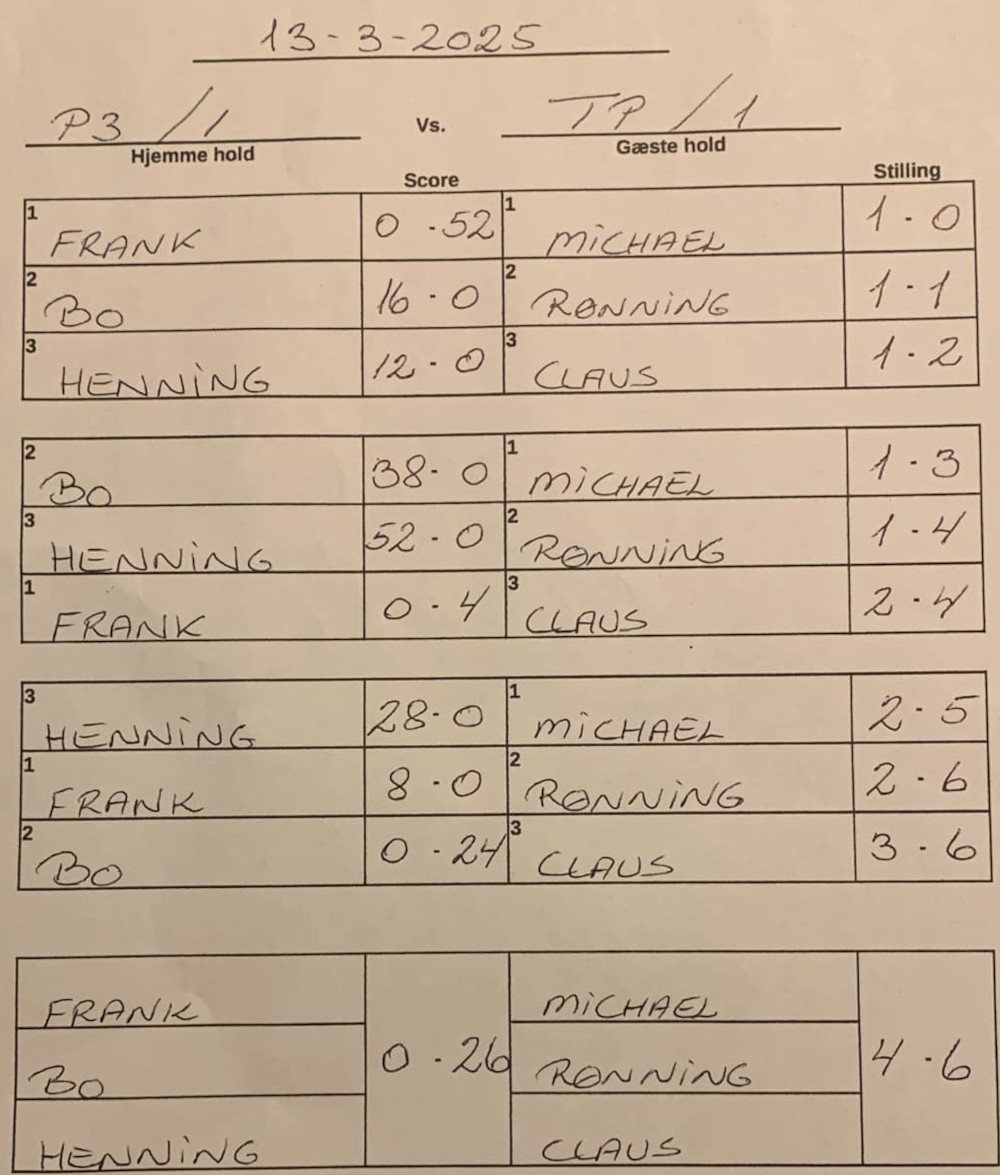 13-3-2025
P3 /1 Vs. TP /1
Hjemme hold Gæste hold
Score Stilling
1 FRANK 0 - 52 1 MiCHAEL 1 - 0
2 BO 16 - 0 2 RØNNiNG 1 - 1
3 HENNiNG 12 - 0 3 CLAUS 1 - 2
2 BO 38 - 0 1 MiCHAEL 1 - 3
3 HENNiNG 52 - 0 2 RØNNiNG 1 - 4
1 FRANK 0 - 4 3 CLAUS 2 - 4
3 HENNiNG 28 - 0 1 MiCHAEL 2 - 5
1 FRANK 8 - 0 2 RØNNiNG 2 - 6
2 BO 0 - 24 3 CLAUS 3 - 6
FRANK MiCHAEL
BO 0 - 26 RØNNiNG 4 - 6
HENNiNG CLAUS